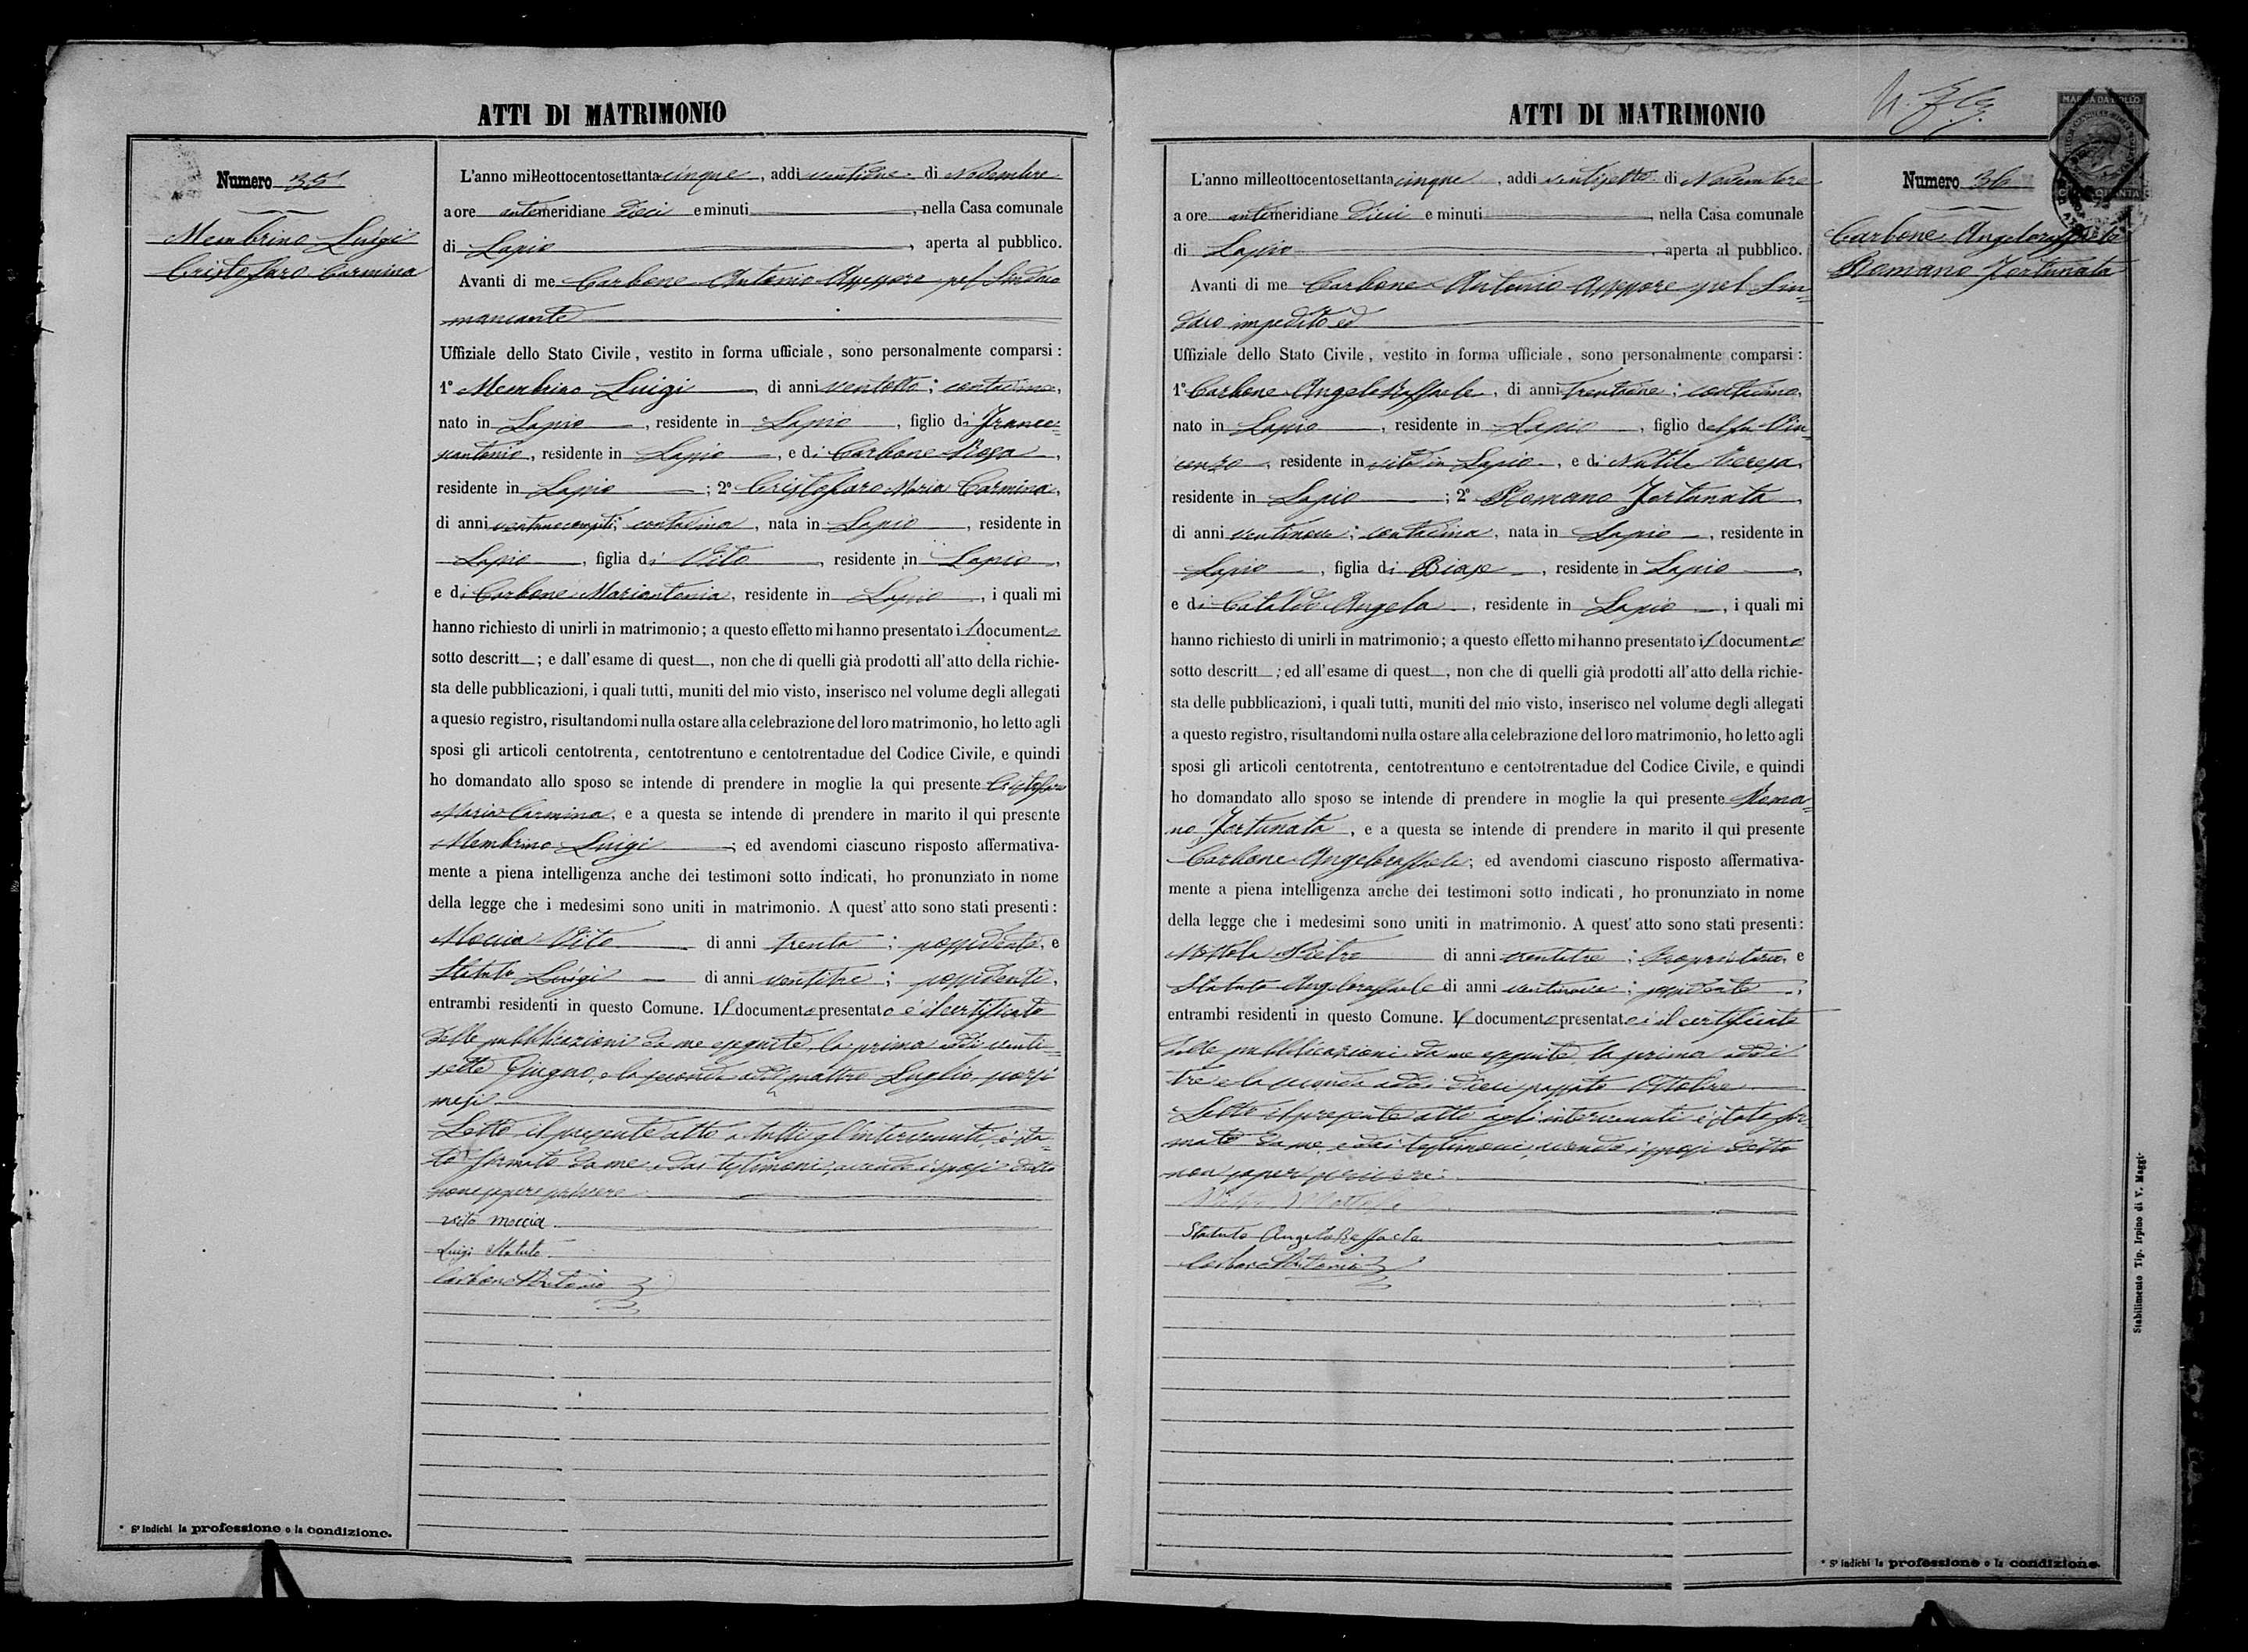 ATTI DI MATRIMONIO
Numero 35
Membrino Luigi
Cristofaro Carmina
L'anno milleottocentosettantacinque, addì ventidue di Novembre
a ore antemeridiane dieci e minuti , nella Casa comunale
di Lapio , aperta al pubblico.
Avanti di me Carbone Antonio Assessore pel Sindaco
mancante
Uffiziale dello Stato Civile, vestito in forma ufficiale, sono personalmente comparsi:
1° Membrino Luigi , di anni ventotto; contadino,
nato in Lapio , residente in Lapio , figlio di France=
scantonio, residente in Lapio , e di Carbone Rosa ,
residente in Lapio ; 2° Cristofaro Maria Carmina,
di anni ventuno compiti; contadina, nata in Lapio , residente in
Lapio , figlia di Vito , residente in Lapio ,
e di Carbone Mariantonia, residente in Lapio , i quali mi
hanno richiesto di unirli in matrimonio; a questo effetto mi hanno presentato il documento
sotto descritt ; e dall'esame di quest , non che di quelli già prodotti all'atto della richie-
sta delle pubblicazioni, i quali tutti, muniti del mio visto, inserisco nel volume degli allegati
a questo registro, risultandomi nulla ostare alla celebrazione del loro matrimonio, ho letto agli
sposi gli articoli centotrenta, centotrentuno e centotrentadue del Codice Civile, e quindi
ho domandato allo sposo se intende di prendere in moglie la qui presente Cristofaro
Maria Carmina, e a questa se intende di prendere in marito il qui presente
Membrino Luigi ; ed avendomi ciascuno risposto affermativa-
mente a piena intelligenza anche dei testimonî sotto indicati, ho pronunziato in nome
della legge che i medesimi sono uniti in matrimonio. A quest'atto sono stati presenti:
Moccia Vito di anni trenta ; possidente, e
Statuto Luigi di anni ventitre ; possidente,
entrambi residenti in questo Comune. Il documento presentato è il certificato
delle pubblicazioni da me eseguite, la prima addì venti=
sette Giugno, e la seconda addì quattro Luglio, scorsi
mesi
Letto il presente atto a tutti gl'intervenuti, è sta=
to firmato da me e dai testimoni, avendo i sposi detto
non sapere scrivere
vito moccia
Luigi Statuto
Carbone Antonio
* S'indichi la professione o la condizione.
ATTI DI MATRIMONIO
MARCA DA BOLLO
Numero 36
Carbone Angeloraffaele
Romano Fortunata
L'anno milleottocentosettantacinque , addì ventisette di Novembre
a ore antemeridiane dieci e minuti , nella Casa comunale
di Lapio , aperta al pubblico.
Avanti di me Carbone Antonio Assessore pel Sin=
daco impedito ed
Uffiziale dello Stato Civile, vestito in forma ufficiale, sono personalmente comparsi:
1° Carbone Angelo Raffaele, di anni trentadue; contadino,
nato in Lapio , residente in Lapio , figlio del fu Vin=
cenzo , residente in vita in Lapio , e di Nutile Teresa,
residente in Lapio ; 2° Romano Fortunata ,
di anni ventinove; contadina, nata in Lapio , residente in
Lapio , figlia di Biase , residente in Lapio ,
e di Cataldo Angela , residente in Lapio , i quali mi
hanno richiesto di unirli in matrimonio; a questo effetto mi hanno presentato il documento
sotto descritt ; ed all'esame di quest , non che di quelli già prodotti all'atto della richie-
sta delle pubblicazioni, i quali tutti, muniti del mio visto, inserisco nel volume degli allegati
a questo registro, risultandomi nulla ostare alla celebrazione del loro matrimonio, ho letto agli
sposi gli articoli centotrenta, centotrentuno e centotrentadue del Codice Civile, e quindi
ho domandato allo sposo se intende di prendere in moglie la qui presente Roma=
no Fortunata , e a questa se intende di prendere in marito il qui presente
Carbone Angeloraffaele; ed avendomi ciascuno risposto affermativa-
mente a piena intelligenza anche dei testimoni sotto indicati, ho pronunziato in nome
della legge che i medesimi sono uniti in matrimonio. A quest'atto sono stati presenti:
Mottola Pietro di anni trentitre ; Proprietario, e
Statuto Angeloraffaele di anni ventinove ; possidente ,
entrambi residenti in questo Comune. Il documento presentato è il certificato
delle pubblicazioni da me eseguite, la prima addì
tre e la seconda addì dieci passato Ottobre
Letto il presente atto agli intervenuti è stato fir=
mato da me e dai testimoni, avendo i sposi detto
non saper scrivere
Pietro Mottola
Statuto Angelo Raffaele
Carbone Antonio
* S'indichi la professione o la condizione.
Stabilimento Tip. Irpino di V. Maggi